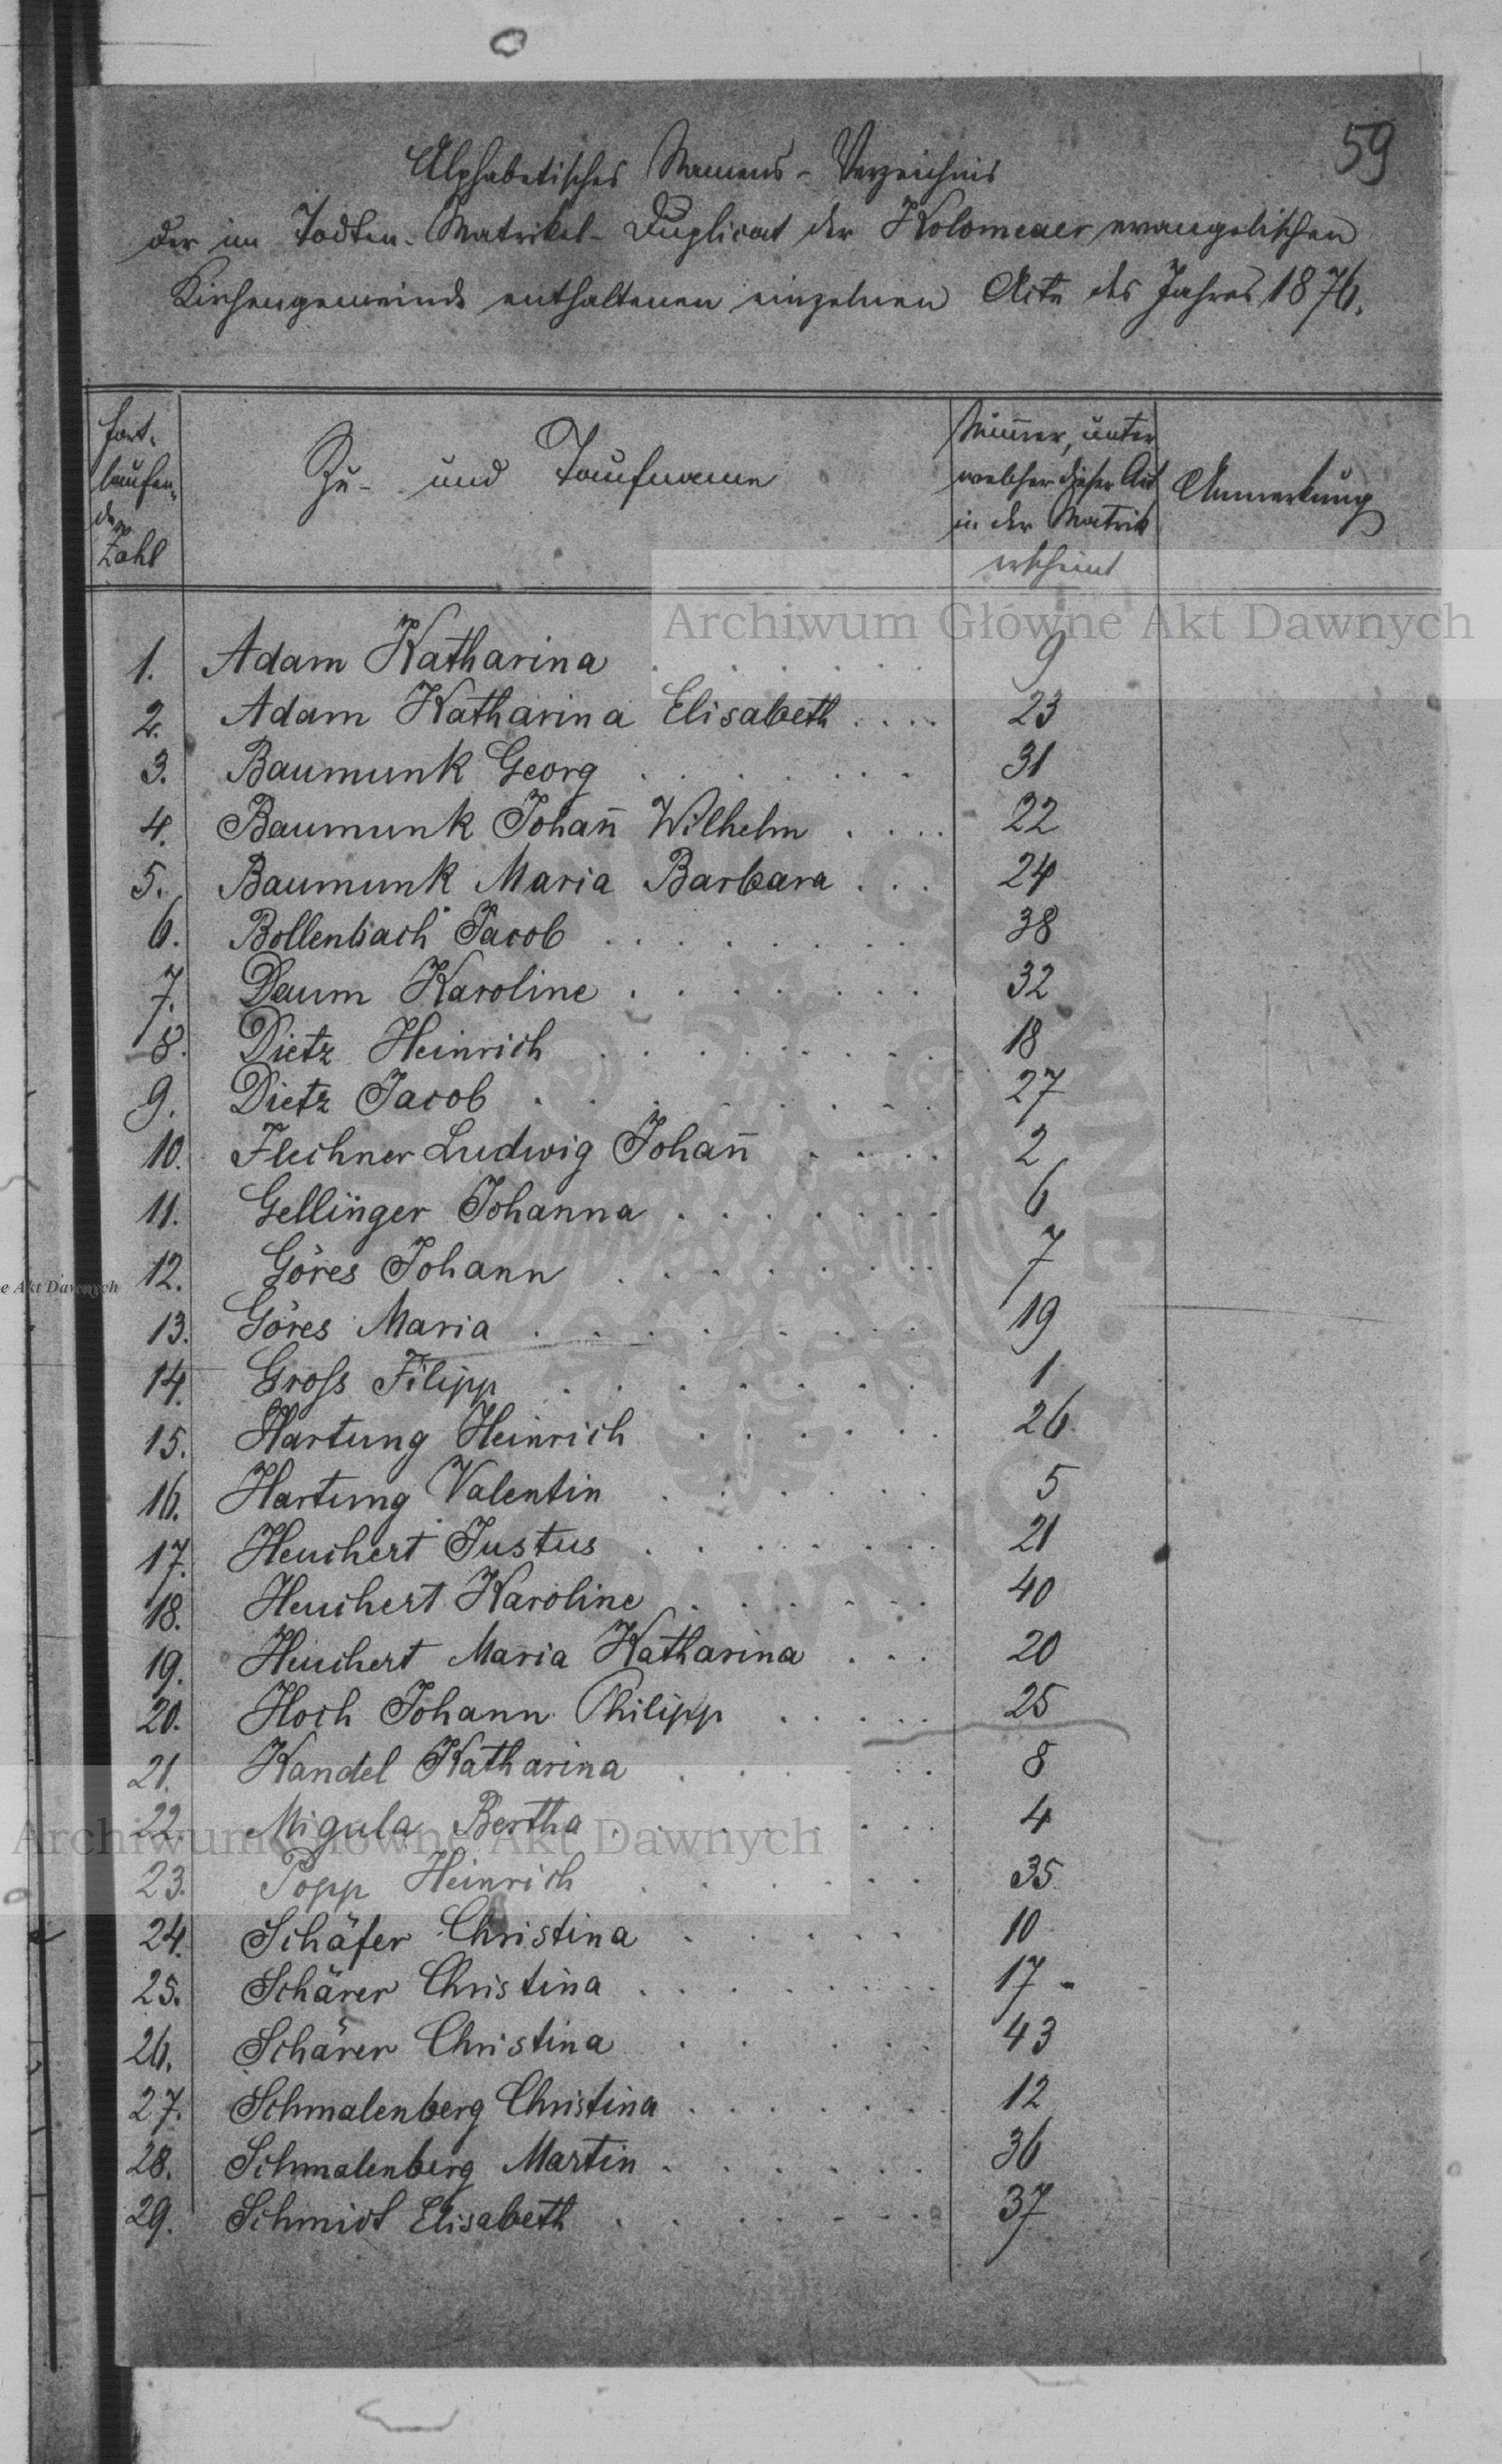 59
Alphabetisches Namens-Verzeichnis
der im Todten-Matrikel-Duplicat der Kolomeaer evangelischen
Kirchengemeinde enthaltenen einzelnen Acte des Jahres 1876.
fort-
laufen-
de
Zahl
Zu- und Taufname
Num̄er, unter
welcher dieser Act
in der Matrik
erscheint
Anmerkung
Archiwum Główne Akt Dawnych
1. Adam Katharina . . . . . . 9
2. Adam Katharina Elisabeth . . . . 23
3. Baumunk Georg . . . . . . 31
4. Baumunk Johan̄ Wilhelm . . . . 22
5. Baumunk Maria Barbara . . . 24
6. Bollenbach Jacob . . . . . . 38
7. Daum Karoline . . . . . . 32
8. Dietz Heinrich . . . . . . 18
9. Dietz Jacob . . . . . . . 27
10. Flechner Ludwig Johan̄ . . . . 2
11. Gellinger Johanna . . . . . . 6
e Akt Dawnych
12. Göres Johann . . . . . . 7
13. Göres Maria . . . . . . . 19
14. Groſs Filipp . . . . . . . 1
15. Hartung Heinrich . . . . . 26
16. Hartung Valentin . . . . . . 5
17. Heuchert Justus . . . . . . 21
18. Heuchert Karoline . . . . . . 40
19. Heuchert Maria Katharina . . . 20
20. Hoch Johann Philipp . . . . . 25
21. Kandel Katharina . . . . . . 8
22. Migula Bertha . . . . . . . 4
Archiwum Główne Akt Dawnych
23. Popp Heinrich . . . . . . 35
24. Schäfer Christina . . . . . 10
25. Schärer Christina . . . . . . 17 -
26. Schärer Christina . . . . . 43
27. Schmalenberg Christina . . . . . . 12
28. Schmalenberg Martin . . . . . . 36
29. Schmidt Elisabeth . . . . . . . 37